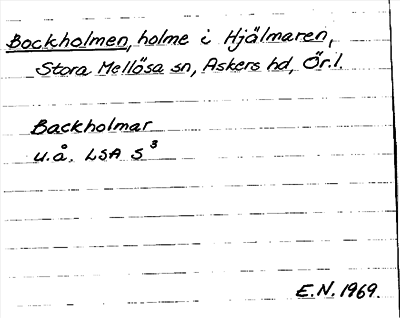 Bockholmen, holme i Hjälmaren,
Stora Mellösa sn, Askers hd, Ör.l.
Backholmar
u.å. LSA S³
E.N. 1969.